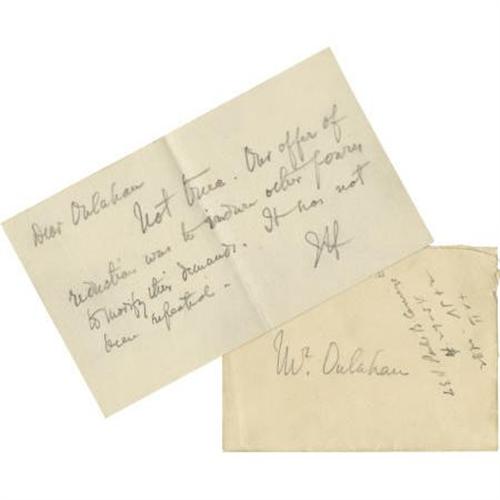 Dear Oulahan
Not true. Our offer of
reduction was to induce other powers
to modify their demands. It has not
been rejected.
Mr. Oulahan